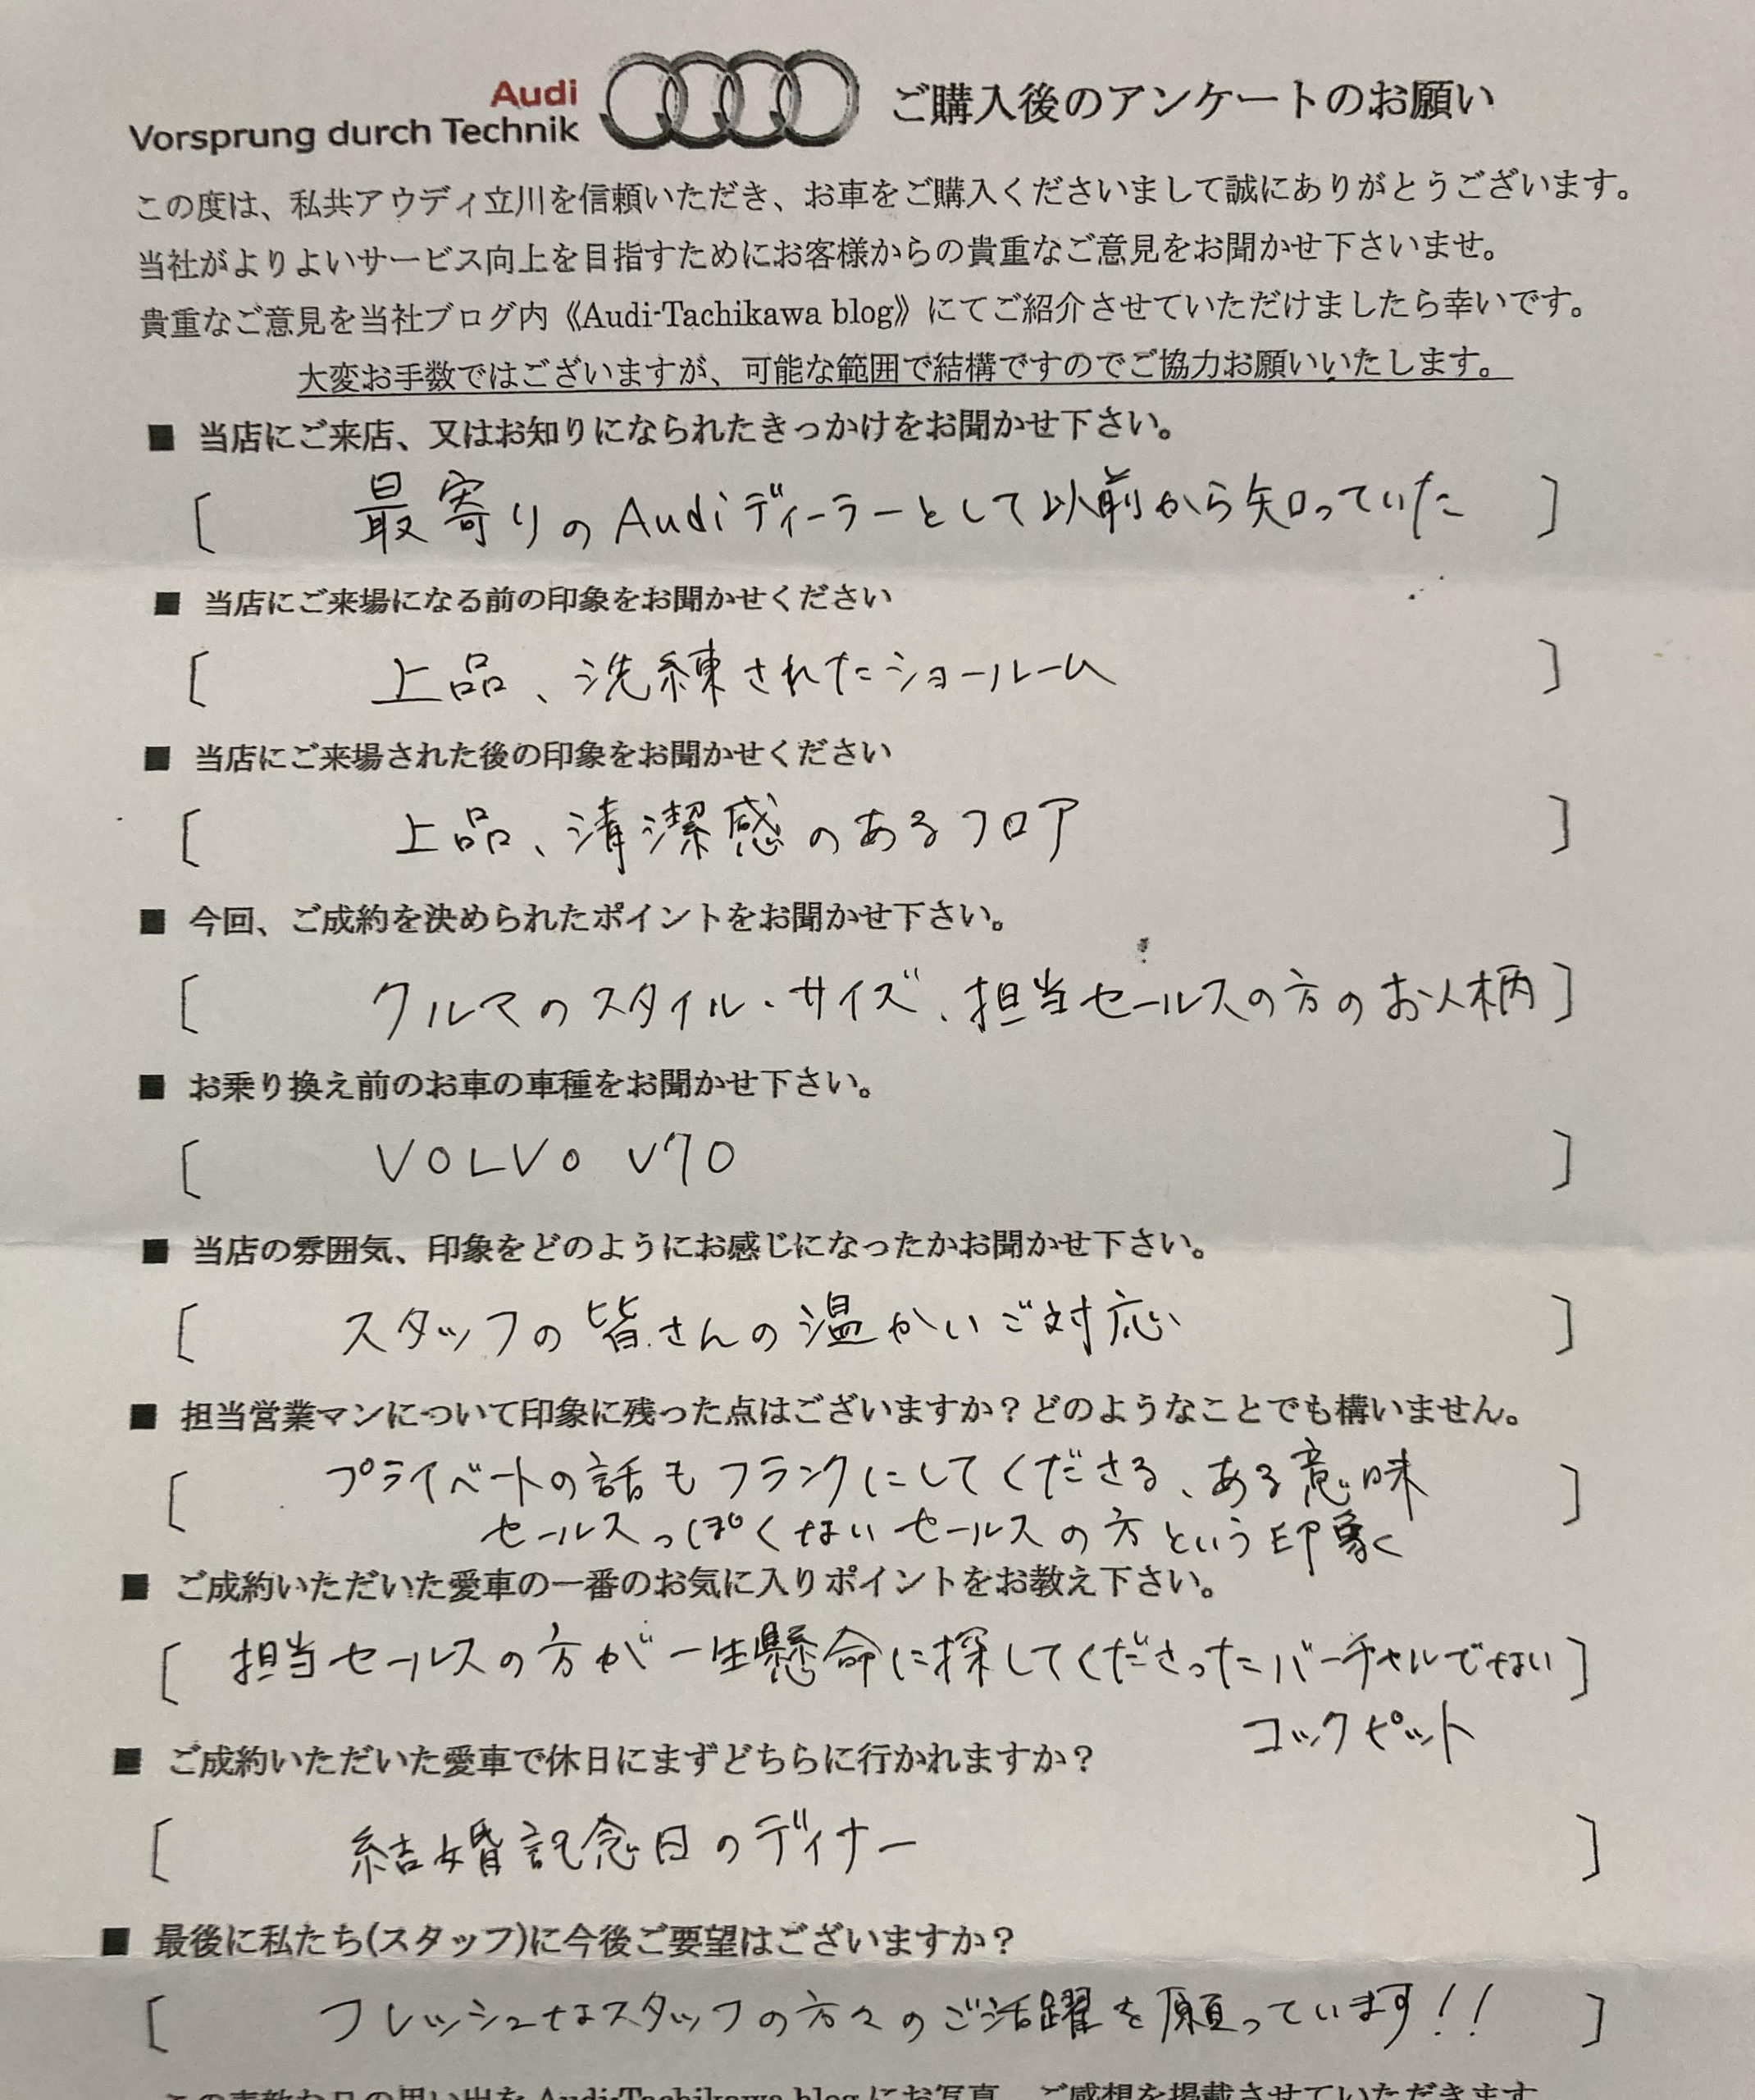 Audi
Vorsprung durch Technik
ご購入後のアンケートのお願い
この度は、私共アウディ立川を信頼いただき、お車をご購入くださいまして誠にありがとうございます。
当社がよりよいサービス向上を目指すためにお客様からの貴重なご意見をお聞かせ下さいませ。
貴重なご意見を当社ブログ内《Audi-Tachikawa blog》にてご紹介させていただけましたら幸いです。
大変お手数ではございますが、可能な範囲で結構ですのでご協力お願いいたします。
■ 当店にご来店、又はお知りになられたきっかけをお聞かせ下さい。
[ 最寄りのAudiディーラーとして以前から知っていた ]
■ 当店にご来場になる前の印象をお聞かせください
[ 上品、洗練されたショールーム ]
■ 当店にご来場された後の印象をお聞かせください
[ 上品、清潔感のあるフロア ]
■ 今回、ご成約を決められたポイントをお聞かせ下さい。
[ クルマのスタイル・サイズ、担当セールスの方のお人柄 ]
■ お乗り換え前のお車の車種をお聞かせ下さい。
[ VOLVO V70 ]
■ 当店の雰囲気、印象をどのようにお感じになったかお聞かせ下さい。
[ スタッフの皆さんの温かいご対応 ]
■ 担当営業マンについて印象に残った点はございますか？どのようなことでも構いません。
[ プライベートの話もフランクにしてくださる、ある意味 ]
セールスっぽくないセールスの方という印象
■ ご成約いただいた愛車の一番のお気に入りポイントをお教え下さい。
[ 担当セールスの方が一生懸命に探してくださったバーチャルでない ]
コックピット
■ ご成約いただいた愛車で休日にまずどちらに行かれますか？
[ 結婚記念日のディナー ]
■ 最後に私たち(スタッフ)に今後ご要望はございますか？
[ フレッシュなスタッフの方々のご活躍を願っています!! ]
この素敵な日の思い出を Audi-Tachikawa blog にお写真、ご感想を掲載させていただきます